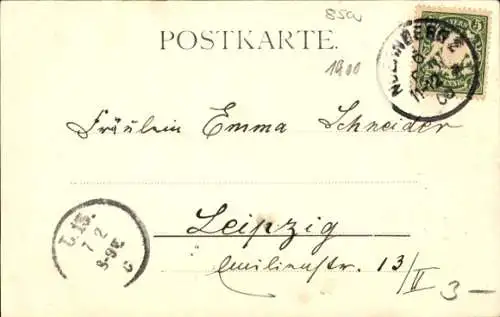 8500
POSTKARTE.
1900
NÜRNBERG 2
Fräulein Emma Schneider
Leipzig
Emilienstr. 13/II
7 2
8-9
3 –